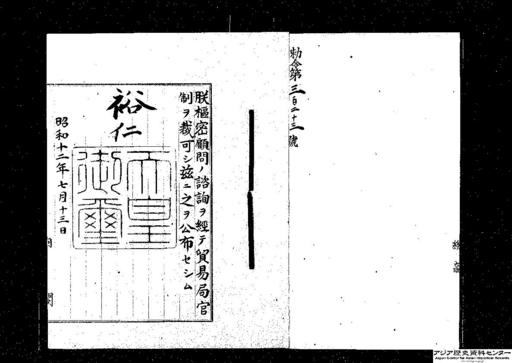 勅令第三百二十三號
朕樞密顧問ノ諮詢ヲ經テ貿易局官
制ヲ裁可シ茲ニ之ヲ公布セシム
裕仁
天皇御璽
昭和十二年七月十三日
内閣
アジア歴史資料センター
Japan Center for Asian Historical Records